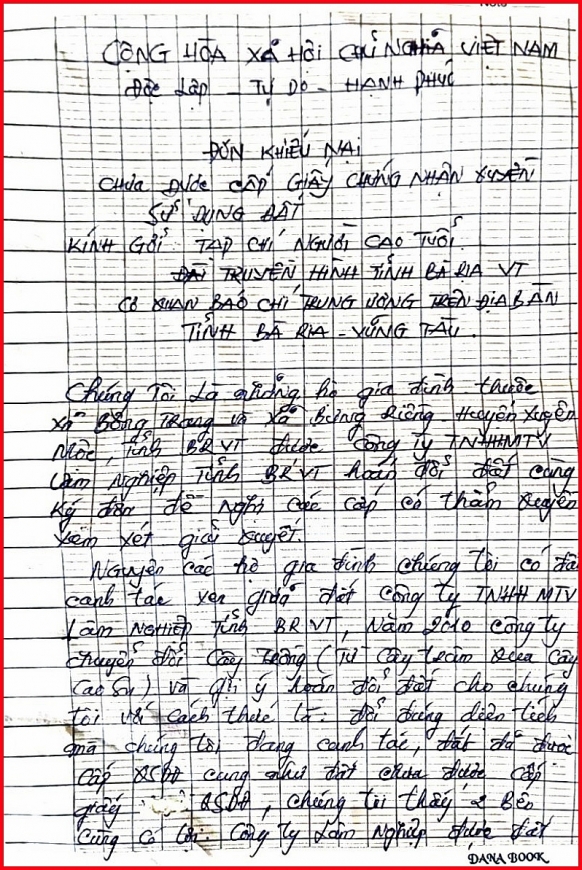 CỘNG HÒA XÃ HỘI CHỦ NGHĨA VIỆT NAM
Độc Lập - Tự Do - HẠNH PHÚC
ĐƠN KHIẾU NẠI
CHƯA ĐƯỢC CẤP GIẤY CHỨNG NHẬN QUYỀN
SỬ DỤNG ĐẤT
KÍNH GỞI: TẠP CHÍ NGƯỜI CAO TUỔI.
ĐÀI TRUYỀN HÌNH TỈNH BÀ RỊA VT
CƠ QUAN BÁO CHÍ TRUNG ƯƠNG TRÊN ĐỊA BÀN
TỈNH BÀ RỊA - VŨNG TÀU.
Chúng Tôi Là những hộ gia đình thuộc
xã Bông Trang và xã Bưng Riềng Huyện Xuyên
Mộc, Tỉnh BRVT được Công Ty TNHHMTV
Lâm Nghiệp Tỉnh BRVT hoán đổi đất cùng
Ký đơn đề nghị các cấp có thẩm quyền
xem xét giải quyết.
Nguyên các hộ gia đình chúng tôi có đất
canh tác xen giữa đất công ty TNHH MTV
Lâm NGHIỆP Tỉnh BRVT, Năm 2010 công ty
chuyển đổi cây trồng (Từ cây tràm qua cây
Cao Su) và gợi ý hoán đổi đất cho chúng
tôi với cách thức là: đổi đúng diện tích
mà chúng tôi đang canh tác, đất đã được
cấp QSDĐ cũng như đất chưa được cấp
giấy QSDĐ, chúng tôi thấy 2 Bên
cùng có lợi. Công ty Lâm Nghiệp được đất
DANA BOOK